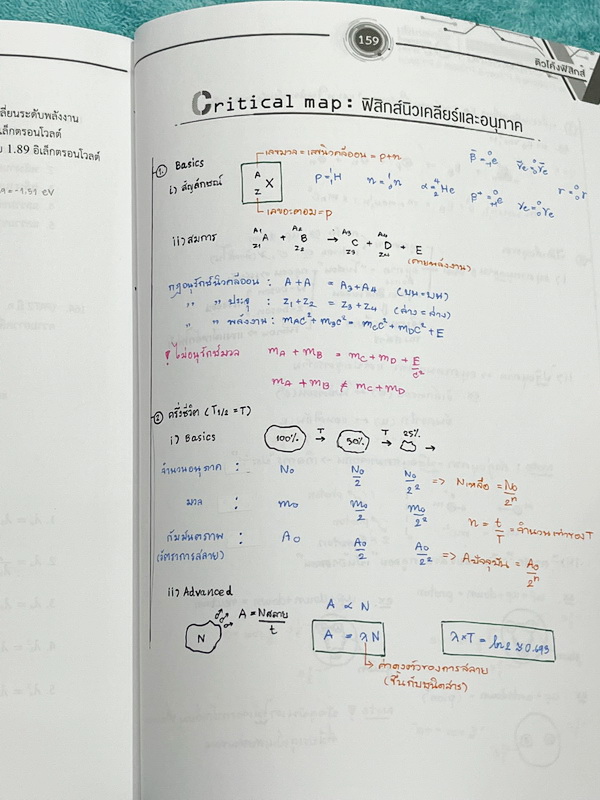 159
ติวโค้งฟิสิกส์
ลี่ยนระดับพลังงาน
เล็กตรอนโวลต์
1.89 อิเล็กตรอนโวลต์
= -1.51 eV
Critical map: ฟิสิกส์นิวเคลียร์และอนุภาค
1. Basics
เลขมวล = เลขนิวคลีออน = p+n
i) สัญลักษณ์ A Z X p = ¹₁H n = ¹₀n α = ⁴₂He
เลขอะตอม = p
ii) สมการ A1 Z1 A + A2 Z2 B → A3 Z3 C + A4 Z4 D + E
(คายพลังงาน)
กฎอนุรักษ์นิวคลีออน : A + A = A3 + A4 (บน = บน)
" " ประจุ : Z1 + Z2 = Z3 + Z4 (ล่าง = ล่าง)
" " พลังงาน : mAc² + mBc² = mCc² + mDc² + E
! ไม่อนุรักษ์มวล mA + mB = mC + mD + E/c²
mA + mB ≠ mC + mD
2. ครึ่งชีวิต (T1/2 = T)
i) Basics 100% T → 50% T → 25% →
จำนวนอนุภาค : N0 N0/2 N0/2² => Nเหลือ = N0/2ⁿ
มวล : m0 m0/2 m0/2² n = t/T = จำนวนเท่าของ T
กัมมันตภาพ : A0 A0/2 A0/2² => Aปัจจุบัน = A0/2ⁿ
(อัตราการสลาย)
ii) Advanced
N A = Nสลาย/t A ∝ N
A = λN λ×T = ln2 ≈ 0.693
ค่าคงตัวของการสลาย
(ขึ้นกับชนิดสาร)